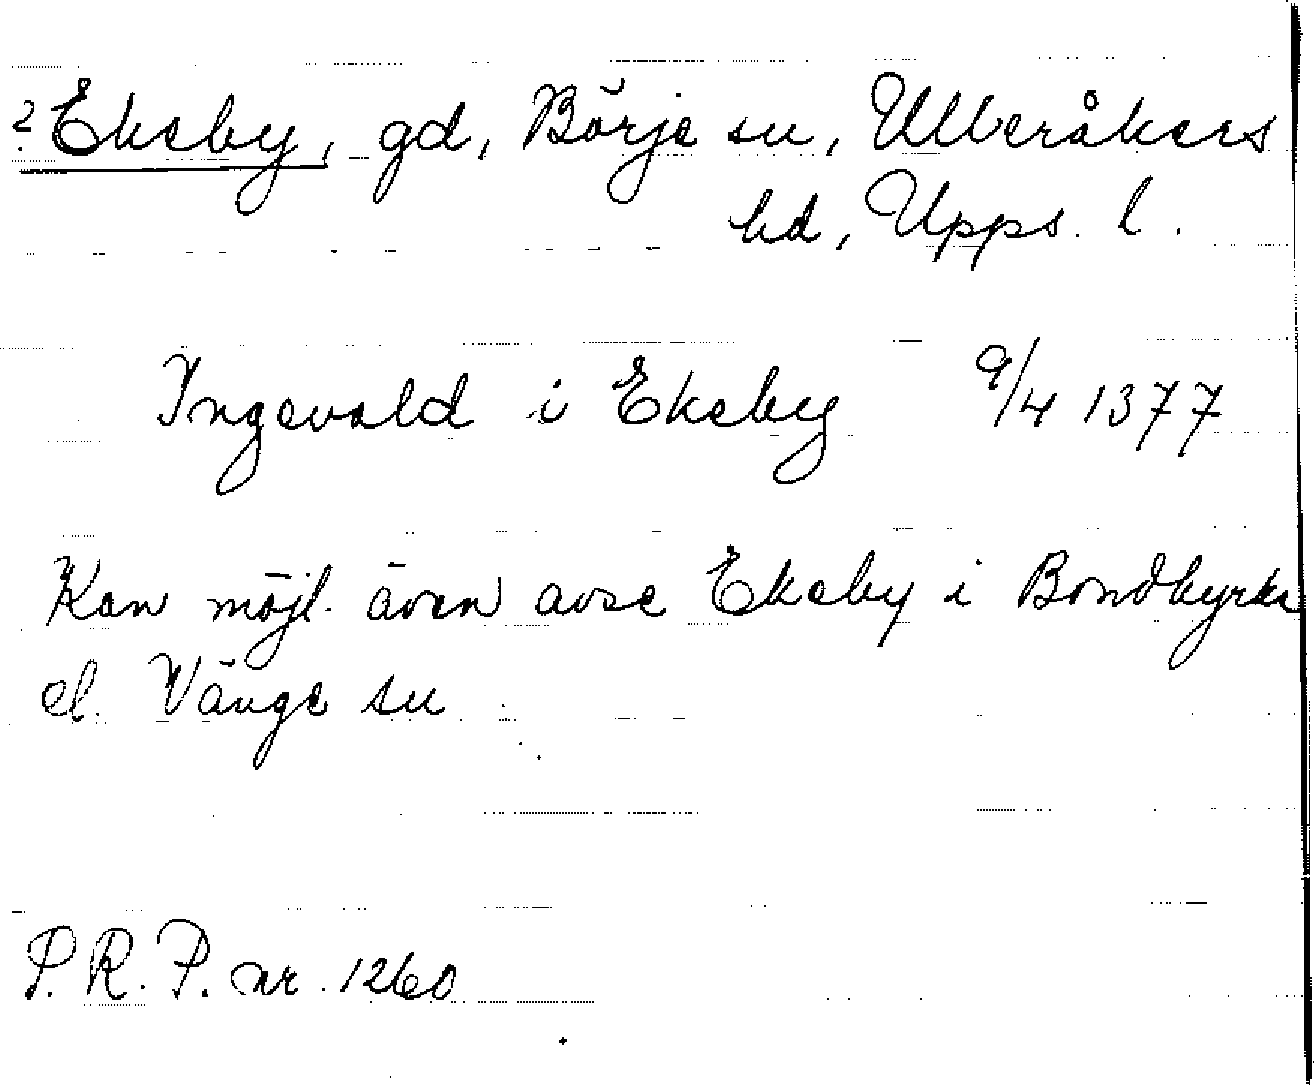 ? Ekeby, gd, Börje sn, Ulleråkers
hd, Upps. l.
Ingevald i Ekeby 9/4 1377
Kan möjl. även avse Ekeby i Bondkyrka
el. Vänge sn
P.R.P. nr. 1260